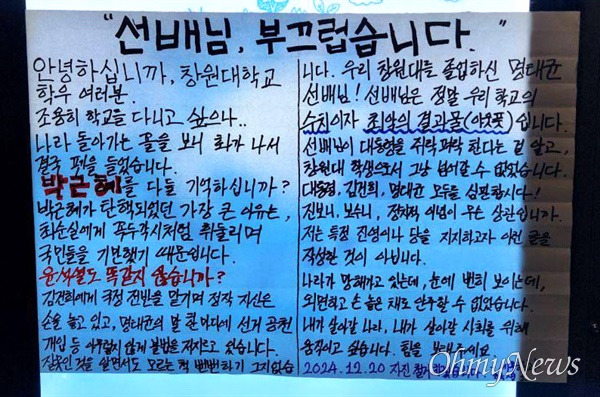 "선배님, 부끄럽습니다."
안녕하십니까, 창원대학교
학우 여러분.
조용히 학교를 다니고 싶으나..
나라 돌아가는 꼴을 보니 화가 나서
결국 펜을 들었습니다.
박근혜를 다들 기억하십니까?
박근혜가 탄핵되었던 가장 큰 이유는,
최순실에게 꼭두각시처럼 휘둘리며
국민들을 기만했기 때문입니다.
윤석열도 똑같지 않습니까?
김건희에게 국정 전반을 맡기며 정작 자신은
손을 놓고 있고, 명태균의 말 한마디에 선거 공천
개입 등 아무렇지 않게 불법을 저지르고 있습니다.
잘못인 것을 알면서도 모르는 척 뻔뻔하기 그지없습
니다. 우리 창원대를 졸업하신 명태균
선배님! 선배님은 정말 우리 학교의
수치이자 최악의 결과물(아웃풋)입니다.
선배님이 대통령을 쥐락펴락 한다는 걸 알고,
창원대 학생으로서 그냥 넘어갈 수 없었습니다.
대통령, 김건희, 명태균 모두를 심판합시다!
진보니, 보수니, 정치적 이념이 무슨 상관입니까.
저는 특정 진영이나 당을 지지하고자 이런 글을
작성한 것이 아닙니다.
나라가 망해가고 있는데, 눈에 뻔히 보이는데,
외면하고 손 놓은 채로 안주할 수 없었습니다.
내가 살아갈 나라, 내가 살아갈 사회를 위해
움직이고 싶습니다. 힘을 보태주세요
2024.12.20 자진 철거
OhmyNews